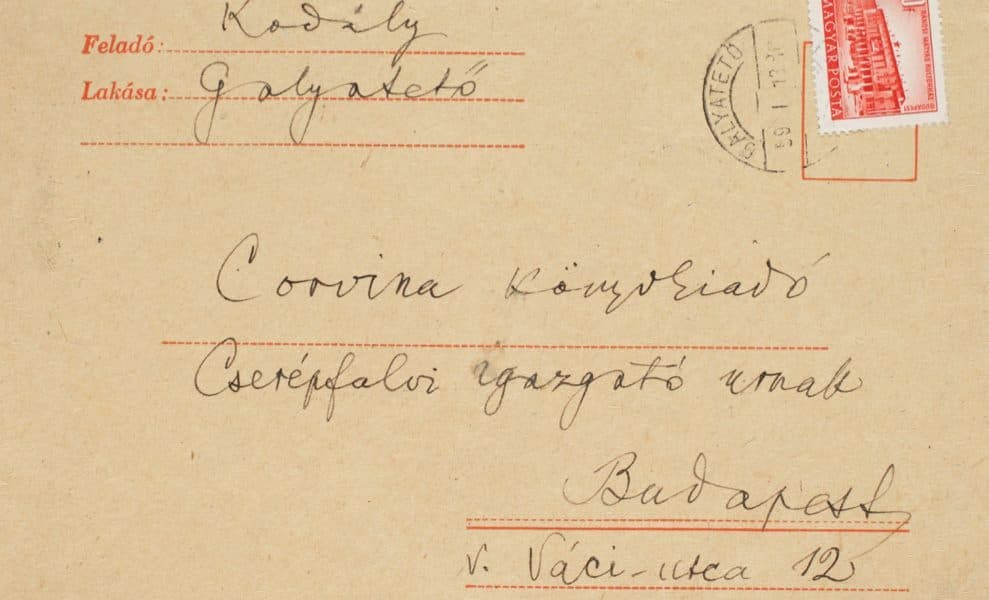 Feladó: Kodály
Lakása: Galyatető
GALYATETŐ
MAGYAR POSTA
BUDAPEST
Corvina Könyvkiadó
Cserépfalvi igazgató urnak
Budapest
V. Váci-utca 12